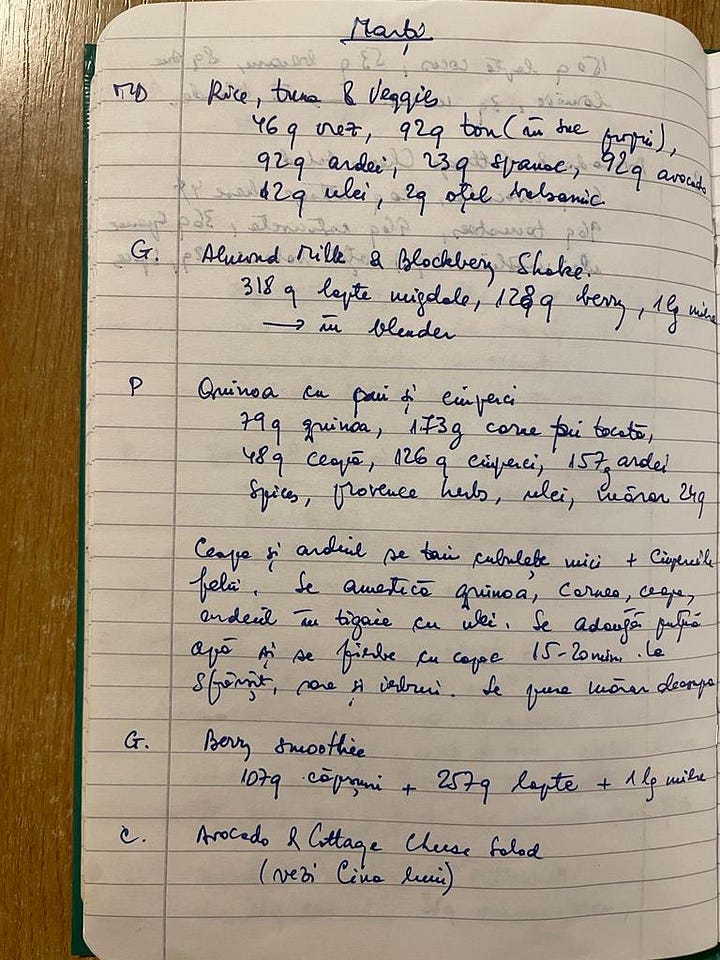 Marți
MD Rice, tuna & Veggies
46 g orez, 92g ton (în suc propriu),
92g ardei, 23g spanac, 92g avocado
12g ulei, 2g oțet balsamic
G. Almond Milk & Blackberry Shake
318 g lapte migdale, 128g berry, 1 lg miere
→ în blender
P Quinoa cu pui și ciuperci
79g quinoa, 173g carne pui tocată,
48g ceapă, 126 g ciuperci, 157g ardei
Spices, provence herbs, ulei, mărar 24g
Ceapa și ardeiul se taie cubulețe mici + Ciupercile
felii. Se amestică quinoa, carnea, ceapa,
ardeiul în tigaie cu ulei. Se adaugă puțină
apă și se fierbe cu capac 15-20min. La
Sfârșit, sare și ierburi. Se pune mărar deasupra
G. Berry smoothie
107g căpșuni + 257g lapte + 1 lg miere
C. Avocado & Cottage Cheese Salad
(vezi Cina luni)